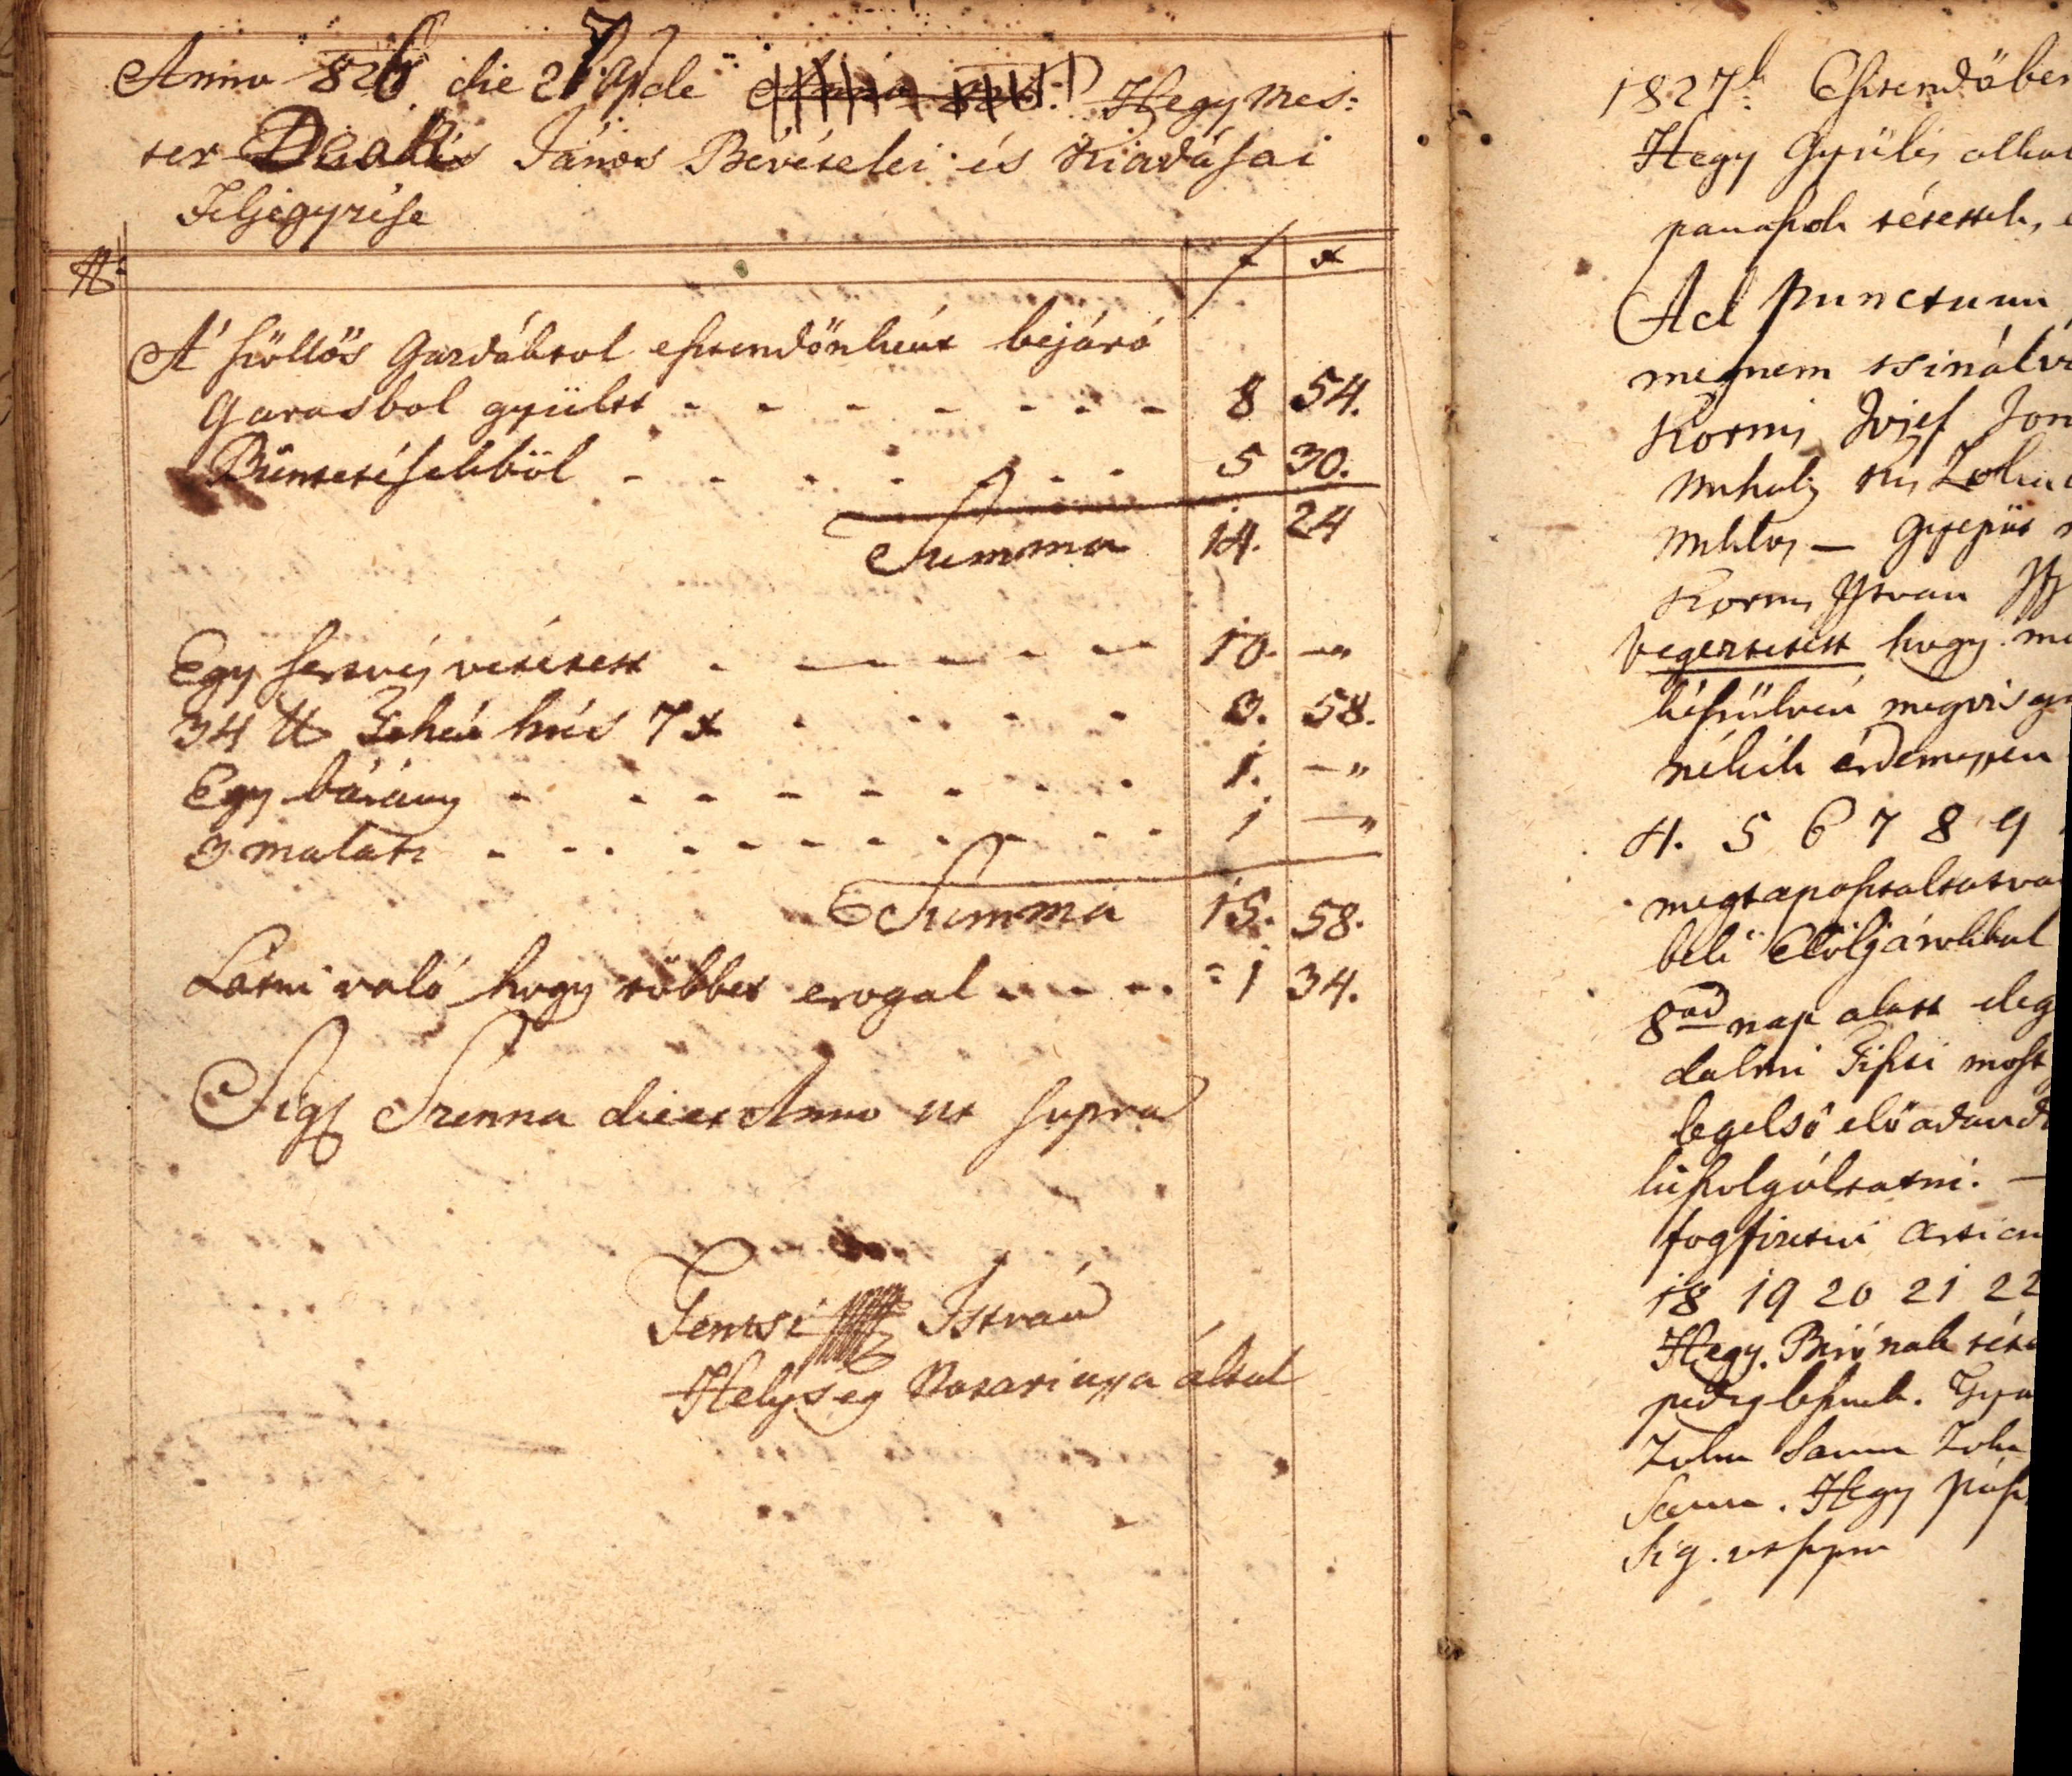 Anno 826 die 27 Apr. de Hegy mes:
ter Deak János Bévételei és Kiadásai
Feljegyzése
No f x
A' szöllős Gazdáktol esztendőnként bejáró
Garasbol gyültt - - - - - - - 8 54.
Büntetésekböl - - - - - - - 5 30.
Summa 14. 24
Egy sertvéj vétetett - - - - - - 10. —„
34 ℔ Tehén hús 7 x - - - - - 3. 58.
Egy bárány - - - - - - - - 1. —„
3 malatz - - - - - - - - - 1 —„
Summa 15. 58.
Látni való hogy többet erogal - - - - = 1 34.
Sig Szenna die et Anno ut supra
Tentsi István
Helység Notariussa által
1827k Esztendöben
Hegy Gyülés alkal
panaszok tétettek,
Ad Punctum
megnem tsinálva
Kormj Jósef
Mihalÿ Kis
Miklos — Gyepüt
Kormj Istvan
Végeztetett hogy
készülvén megvisgá
nékik érdemessen
4. 5 6 7 8 9
megtapasztaltatva
beli Elöljárokkal
8ad nap alatt eleg
dalmi Tiszti most
legelső előadand
kiszolgáltatni. —
fog fizetni
18 19 20 21 22
Hegy Birónak
pedig lesznek.
Hegy
Sig. ut supra